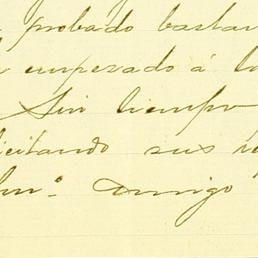 probado bastan
empezado á la
Sin tiempo
licitando sus
amigo